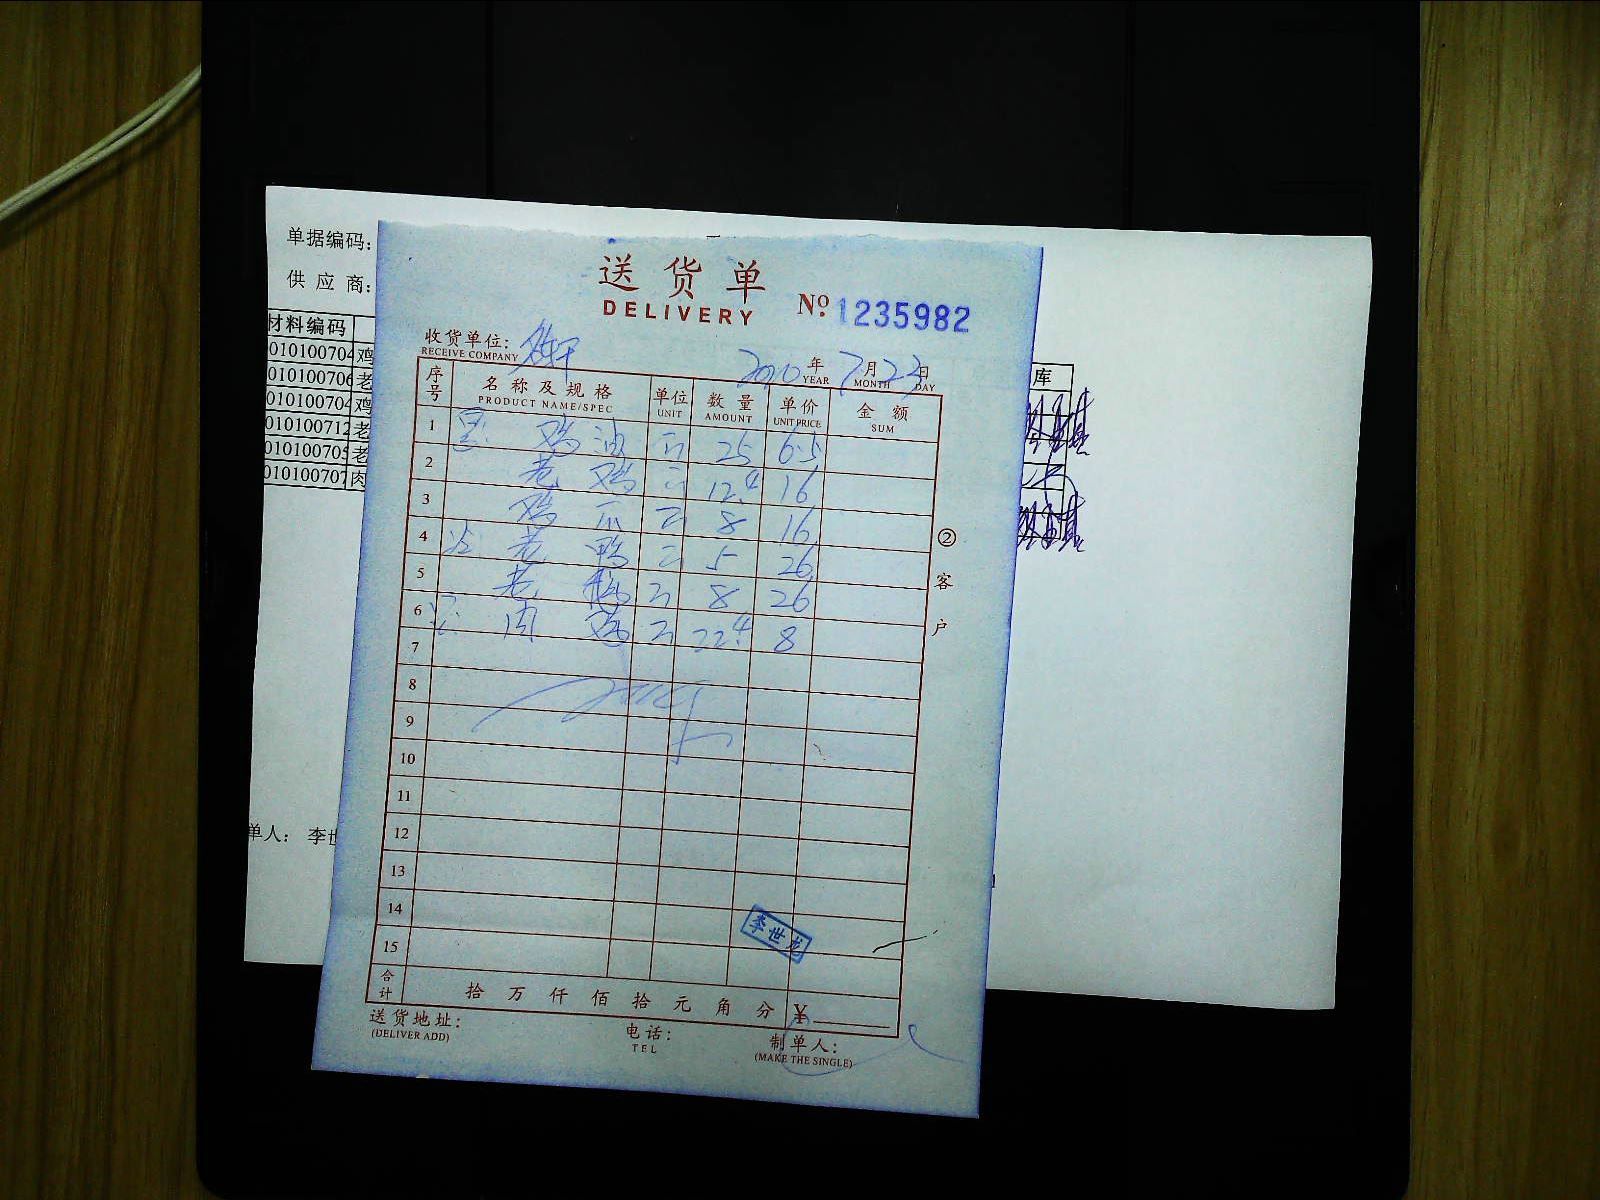 单据编码:
供 应 商:
材料编码
库
010100704 鸡
010100706 老
010100704 鸡
010100712 老
01010070 老
01010070 肉
单人: 李世
送货单
DELIVERY
№: 1235982
收货单位:
RECEIVE COMPANY
2020 年 7 月 23 日
YEAR MONTH DAY
序号 名称及规格 单位 数量 单价 金额
PRODUCT NAME/SPEC UNIT AMOUNT UNIT PRICE SUM
1 鸡油 斤 25 6.5
2 老鸡 斤 12.4 16
3 鸡爪 斤 8 16
4 老鸭 斤 5 26
5 老鹅 斤 8 26
6 肉鸡 斤 22.4 8
7
8
9
10
11
12
13
14
15
李世龙
合计 拾 万 仟 佰 拾 元 角 分 ¥
② 客户
送货地址:
(DELIVER ADD)
电话:
TEL
制单人:
(MAKE THE SINGLE)